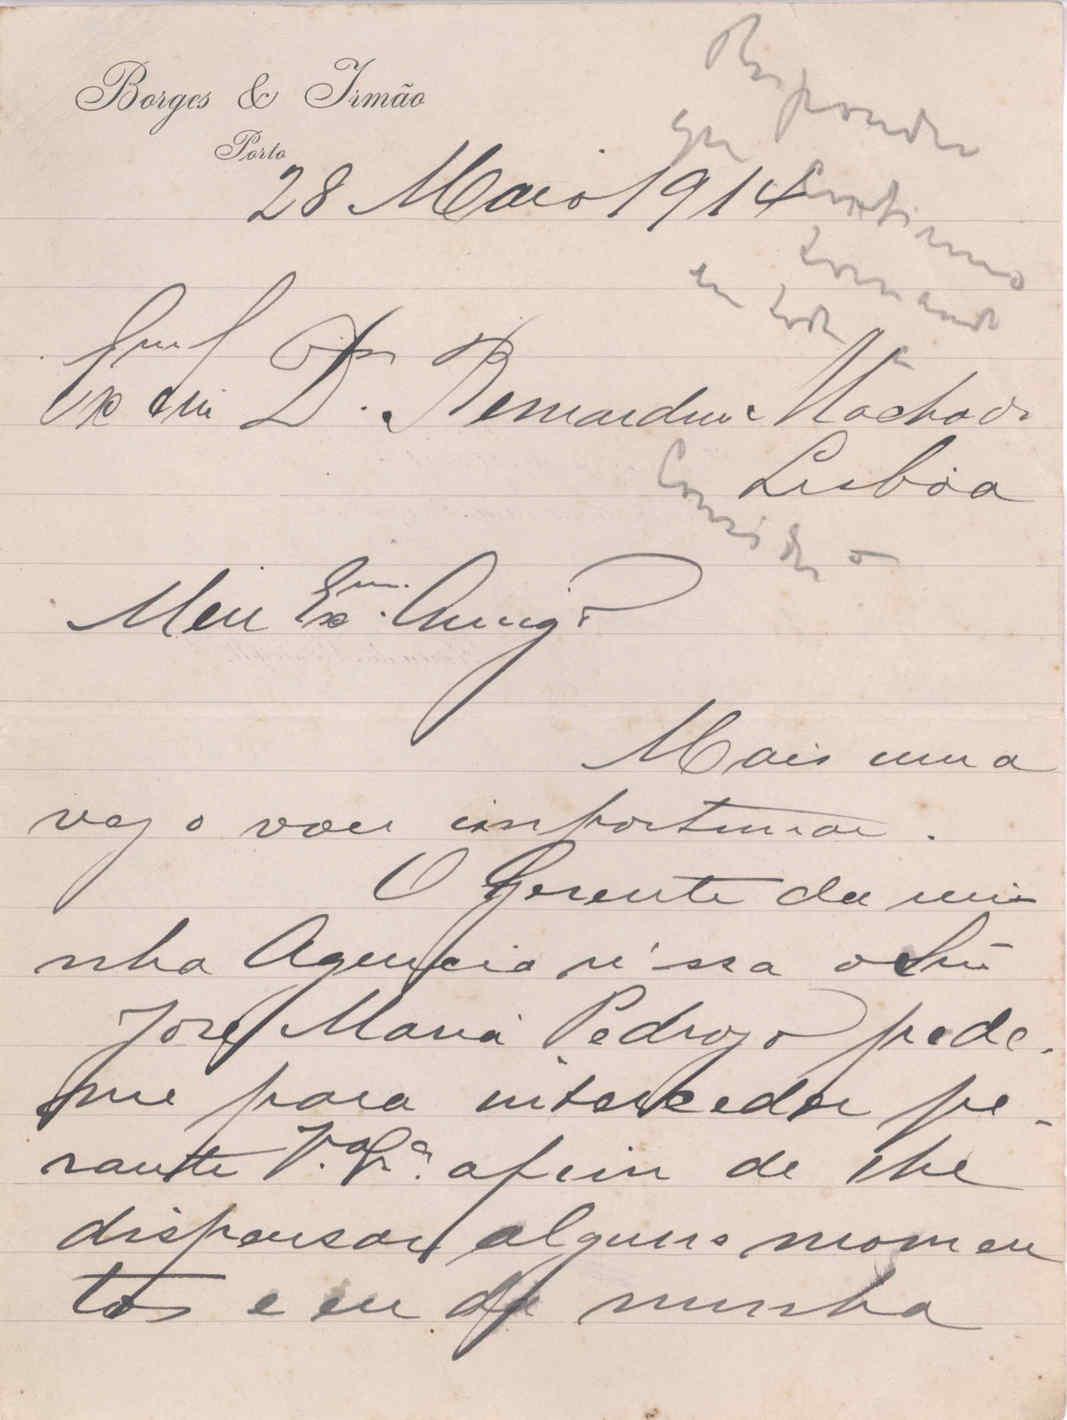 Borges & Irmão
Porto
28 Maio 1914
Responder
que continuo
tomando
em toda
Exmo Snr Dr. Bernardino Machado
Lisboa
Consideração
Meu Exmo. Amigo
Mais uma
vez o vou importunar.
O Gerente da mi-
nha Agencia n'essa o Snr
José Maria Pedrozo pede-
me para interceder pe-
rante V. Exª. afim de lhe
dispensar alguns momen
tos e eu de minha